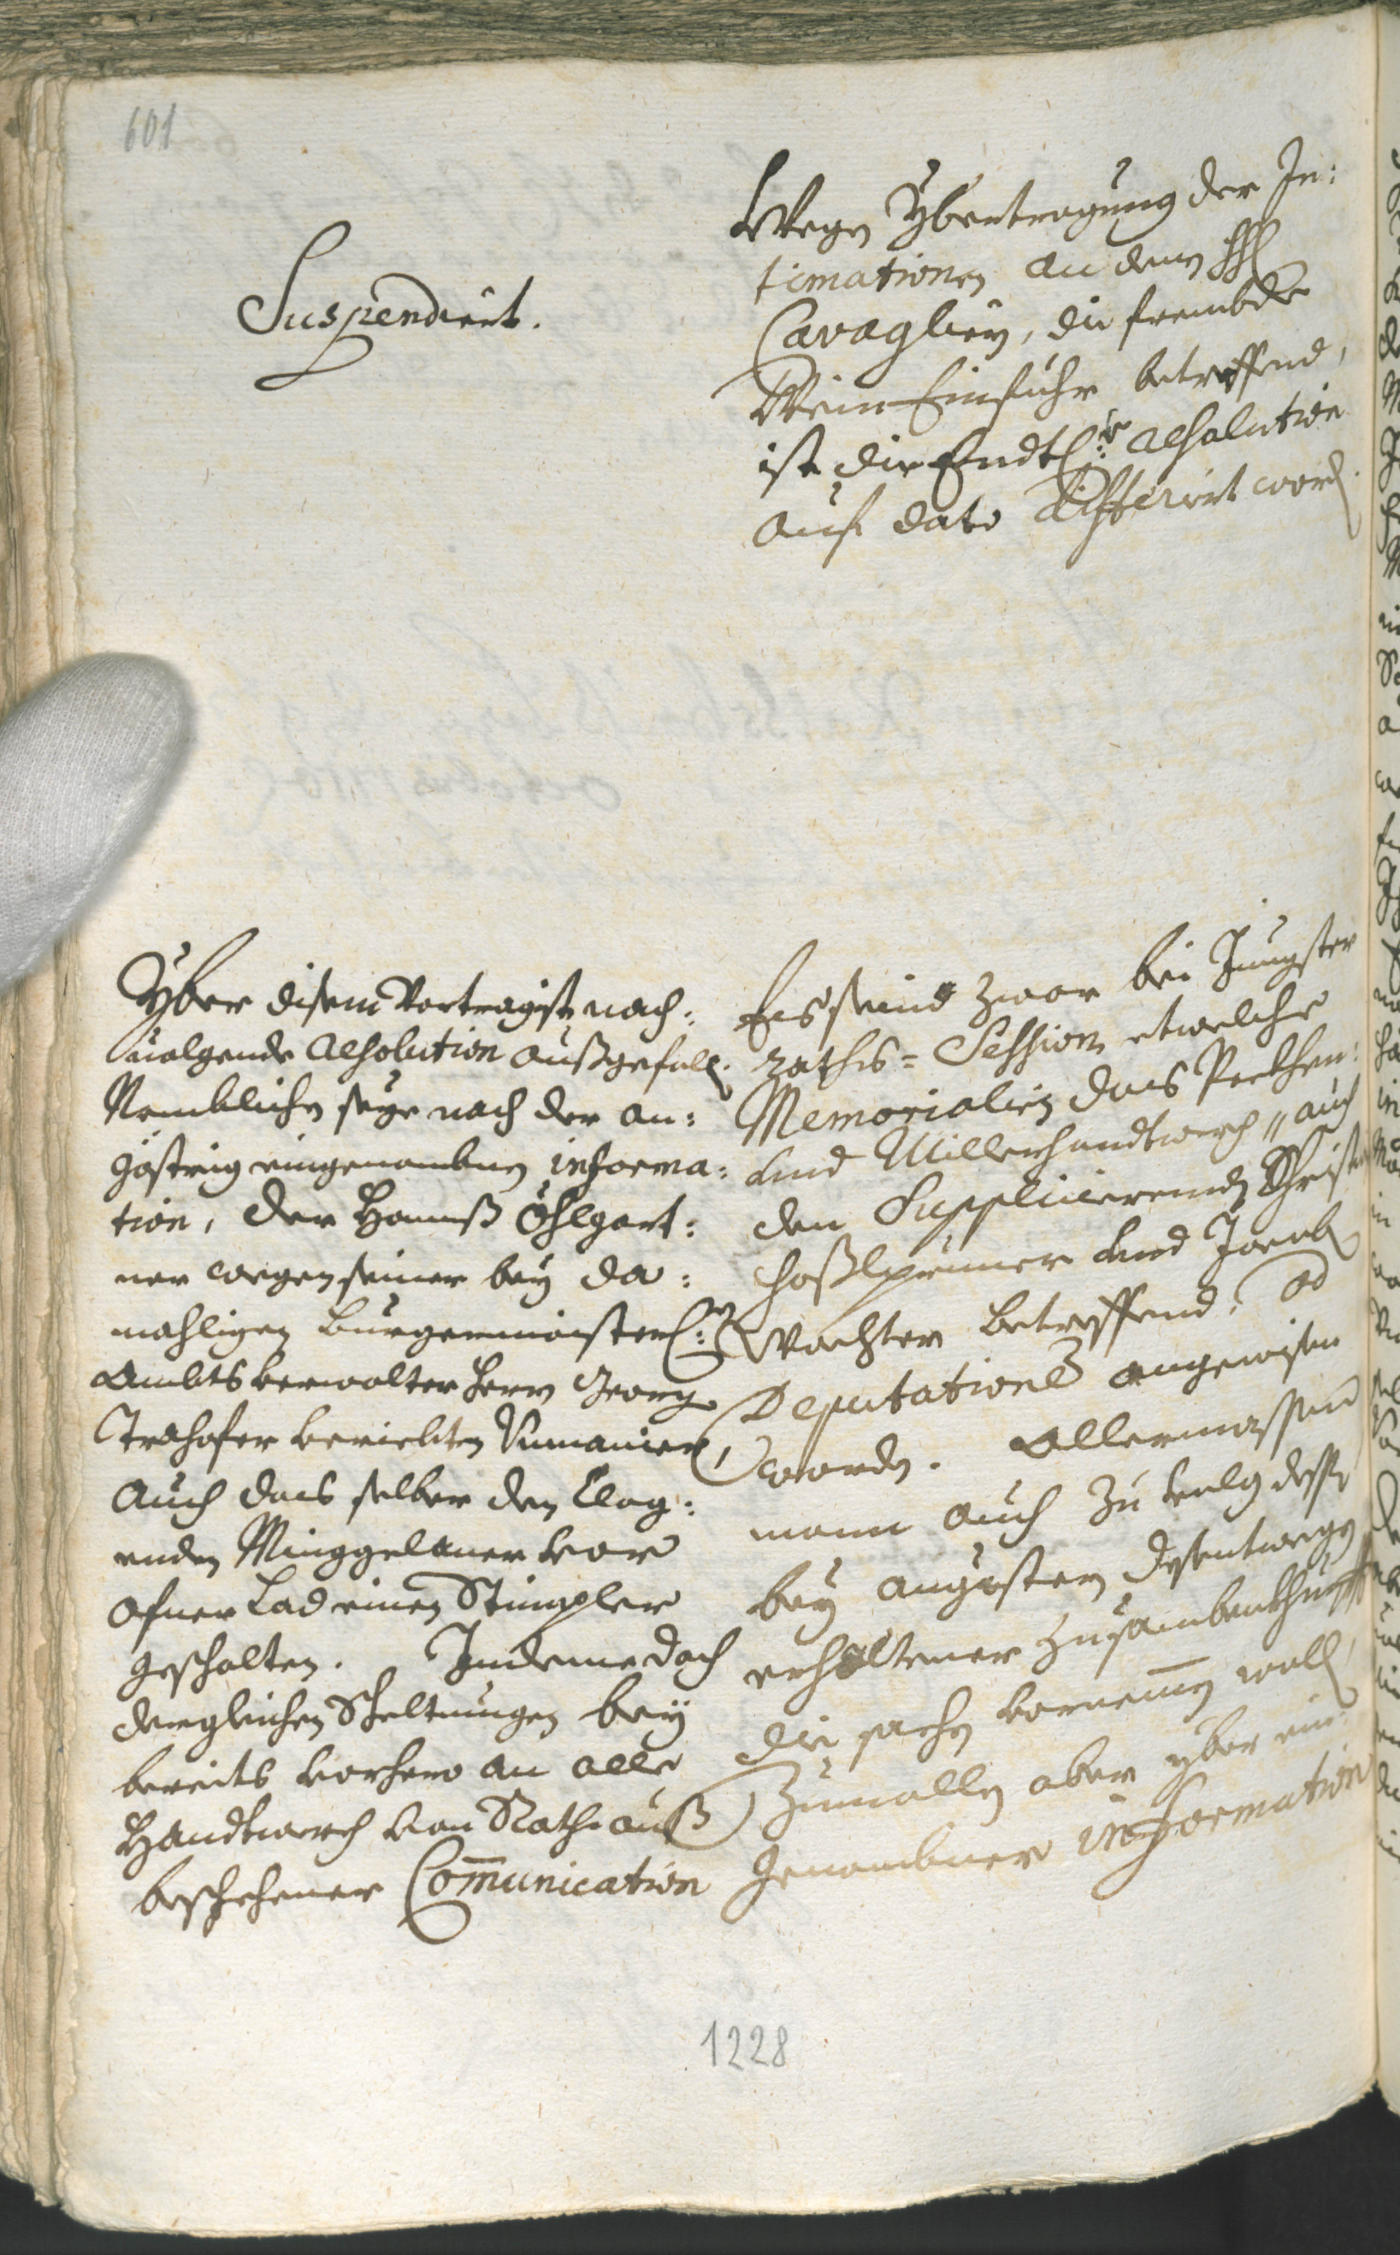 601
Suspendiert.
Wegen Ybertragung der In:
timationen an denn HH
Cavaglien, die frembde
Wein-Einfuhr betreffend,
ist die Endtl:e resolution
auf dato differiert word.
Yber disem Vortrag ist nach:
uolgende resolution außgefall.
Nemblichen seye nach der an:
göstrig eingenombnen informa:
tion, der Hannß Öhlgart:
ner wegen seiner bey da:
mahligen Burgermaisterl:en
Ambts verwalter Herrn Georg
verüebten Vnmanier,
auch das selber den Clag:
enden Minggelauer vor
ofner Lad einen Stimpler
geschalten. Indeme doch
dergleichen Scheltungen bey
bereits vorhero an alle
Handtwerch von Rath auß
beschehener Communication
Es seind zwar bei Jungster
raths= Session etwelche
Memorialien das Pekhen:
vnd Millerhandtwerch, auch
den Supplicierenden Christn
vnd Jacob
Wachter betreffend, ad
Deputationē angewisen
worden. Allermassen
mann auch zu volg dessn
bey angestern desentwegen
erhaltener Zusambenkhunfft
die sachen vornemen woll
Zumallen aber yber ein:
genombner information
1228